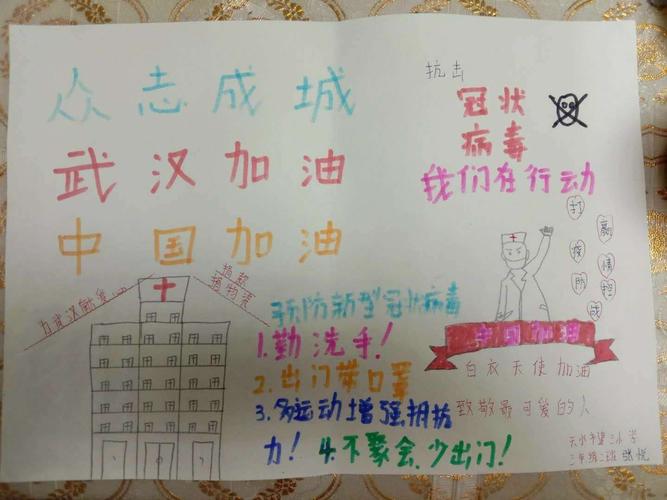 众志成城
武汉加油
中国加油
为武汉献爱
捐款
捐物资
抗击
冠状
病毒
我们在行动
打赢
疫情
防控
预防新型冠状病毒
1.勤洗手!
2.出门带口罩
3.多运动增强拥抗
力! 4.不聚会.少出门!
中国加油
白衣天使加油
致敬最可爱的人
小学
三年级二班